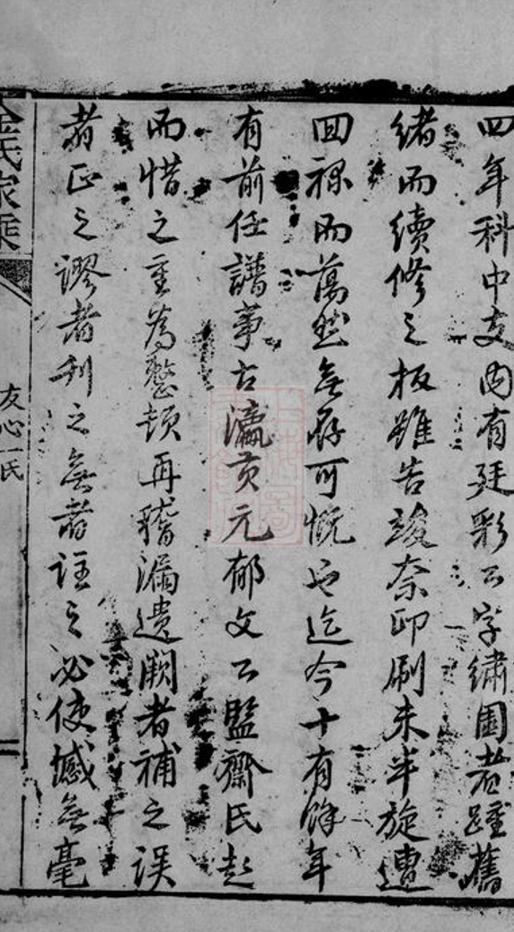 四年科中支內有廷彩公字繡園者踵舊
緒而續修之板雖告竣奈印刷未半旋遭
回祿而蕩然無存可慨也迄今十有餘年
有前任譜事古瀛貢元郁文公監齋氏起
而惜之重為整頓再稽漏遺闕者補之誤
者正之謬者刊之無者註之必使憾無毫
金氏家乘
友心一氏